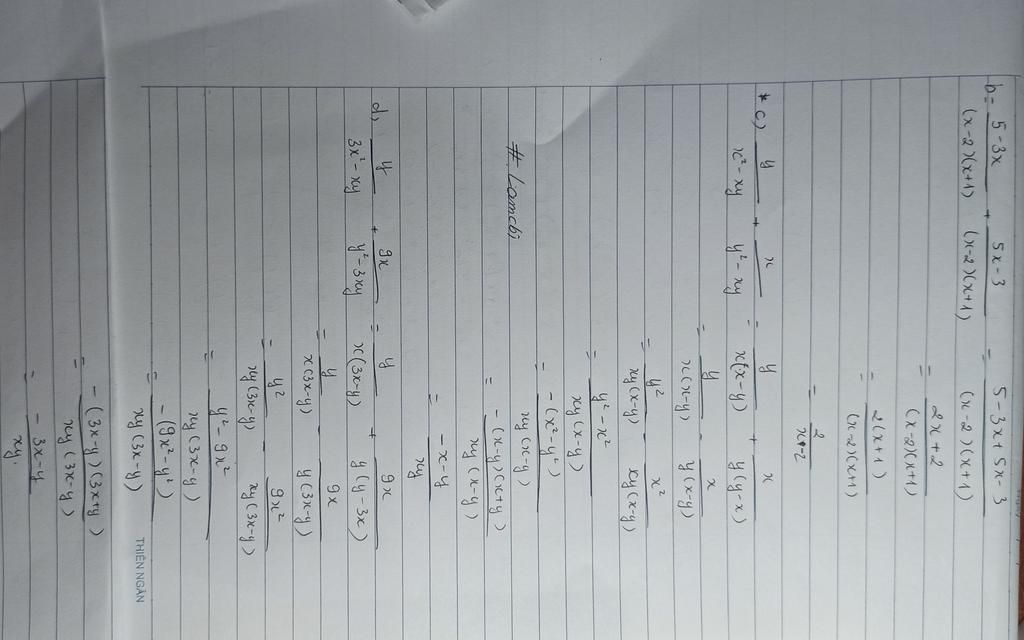 b = (5 - 3x)/((x-2)(x+1)) + (5x - 3)/((x-2)(x+1)) = (5 - 3x + 5x - 3)/((x-2)(x+1))
= (2x + 2)/((x-2)(x+1))
= (2(x+1))/((x-2)(x+1))
= 2/(x-2)
* c) y/(x² - xy) + x/(y² - xy) = y/(x(x-y)) + x/(y(y-x))
= y/(x(x-y)) - x/(y(x-y))
= y²/(xy(x-y)) - x²/(xy(x-y))
= (y² - x²)/(xy(x-y))
= (-(x² - y²))/(xy(x-y))
= (-(x-y)(x+y))/(xy(x-y))
= (-x-y)/(xy)
# Lamcbi
d, y/(3x² - xy) + 9x/(y² - 3xy) = y/(x(3x-y)) + 9x/(y(y-3x))
= y/(x(3x-y)) - 9x/(y(3x-y))
= y²/(xy(3x-y)) - 9x²/(xy(3x-y))
= (y² - 9x²)/(xy(3x-y))
= (-(9x² - y²))/(xy(3x-y))
THIÊN NGÂN
= (-(3x-y)(3x+y))/(xy(3x-y))
= (-3x-y)/(xy).